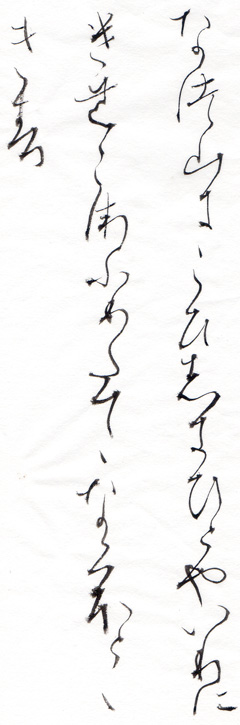 なつ山にこひしきひとやいりに
けむこゑふりたてゝなくほとゝ
きす